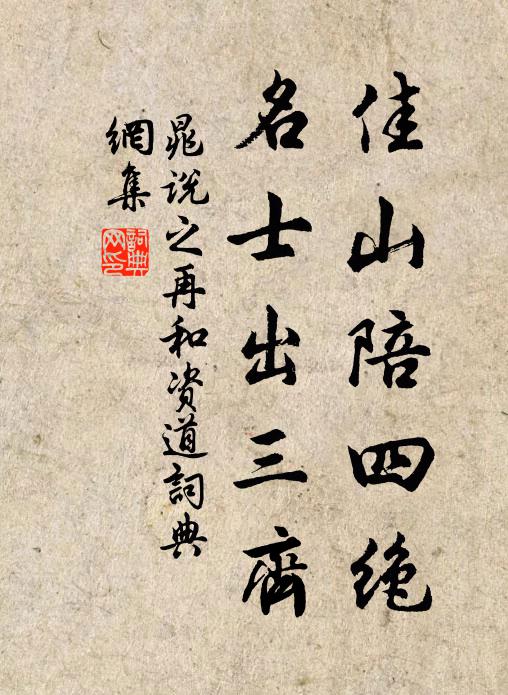 佳山陪四绝
名士出三齊
晁说之再和资道詞典
網集
詞典
网印